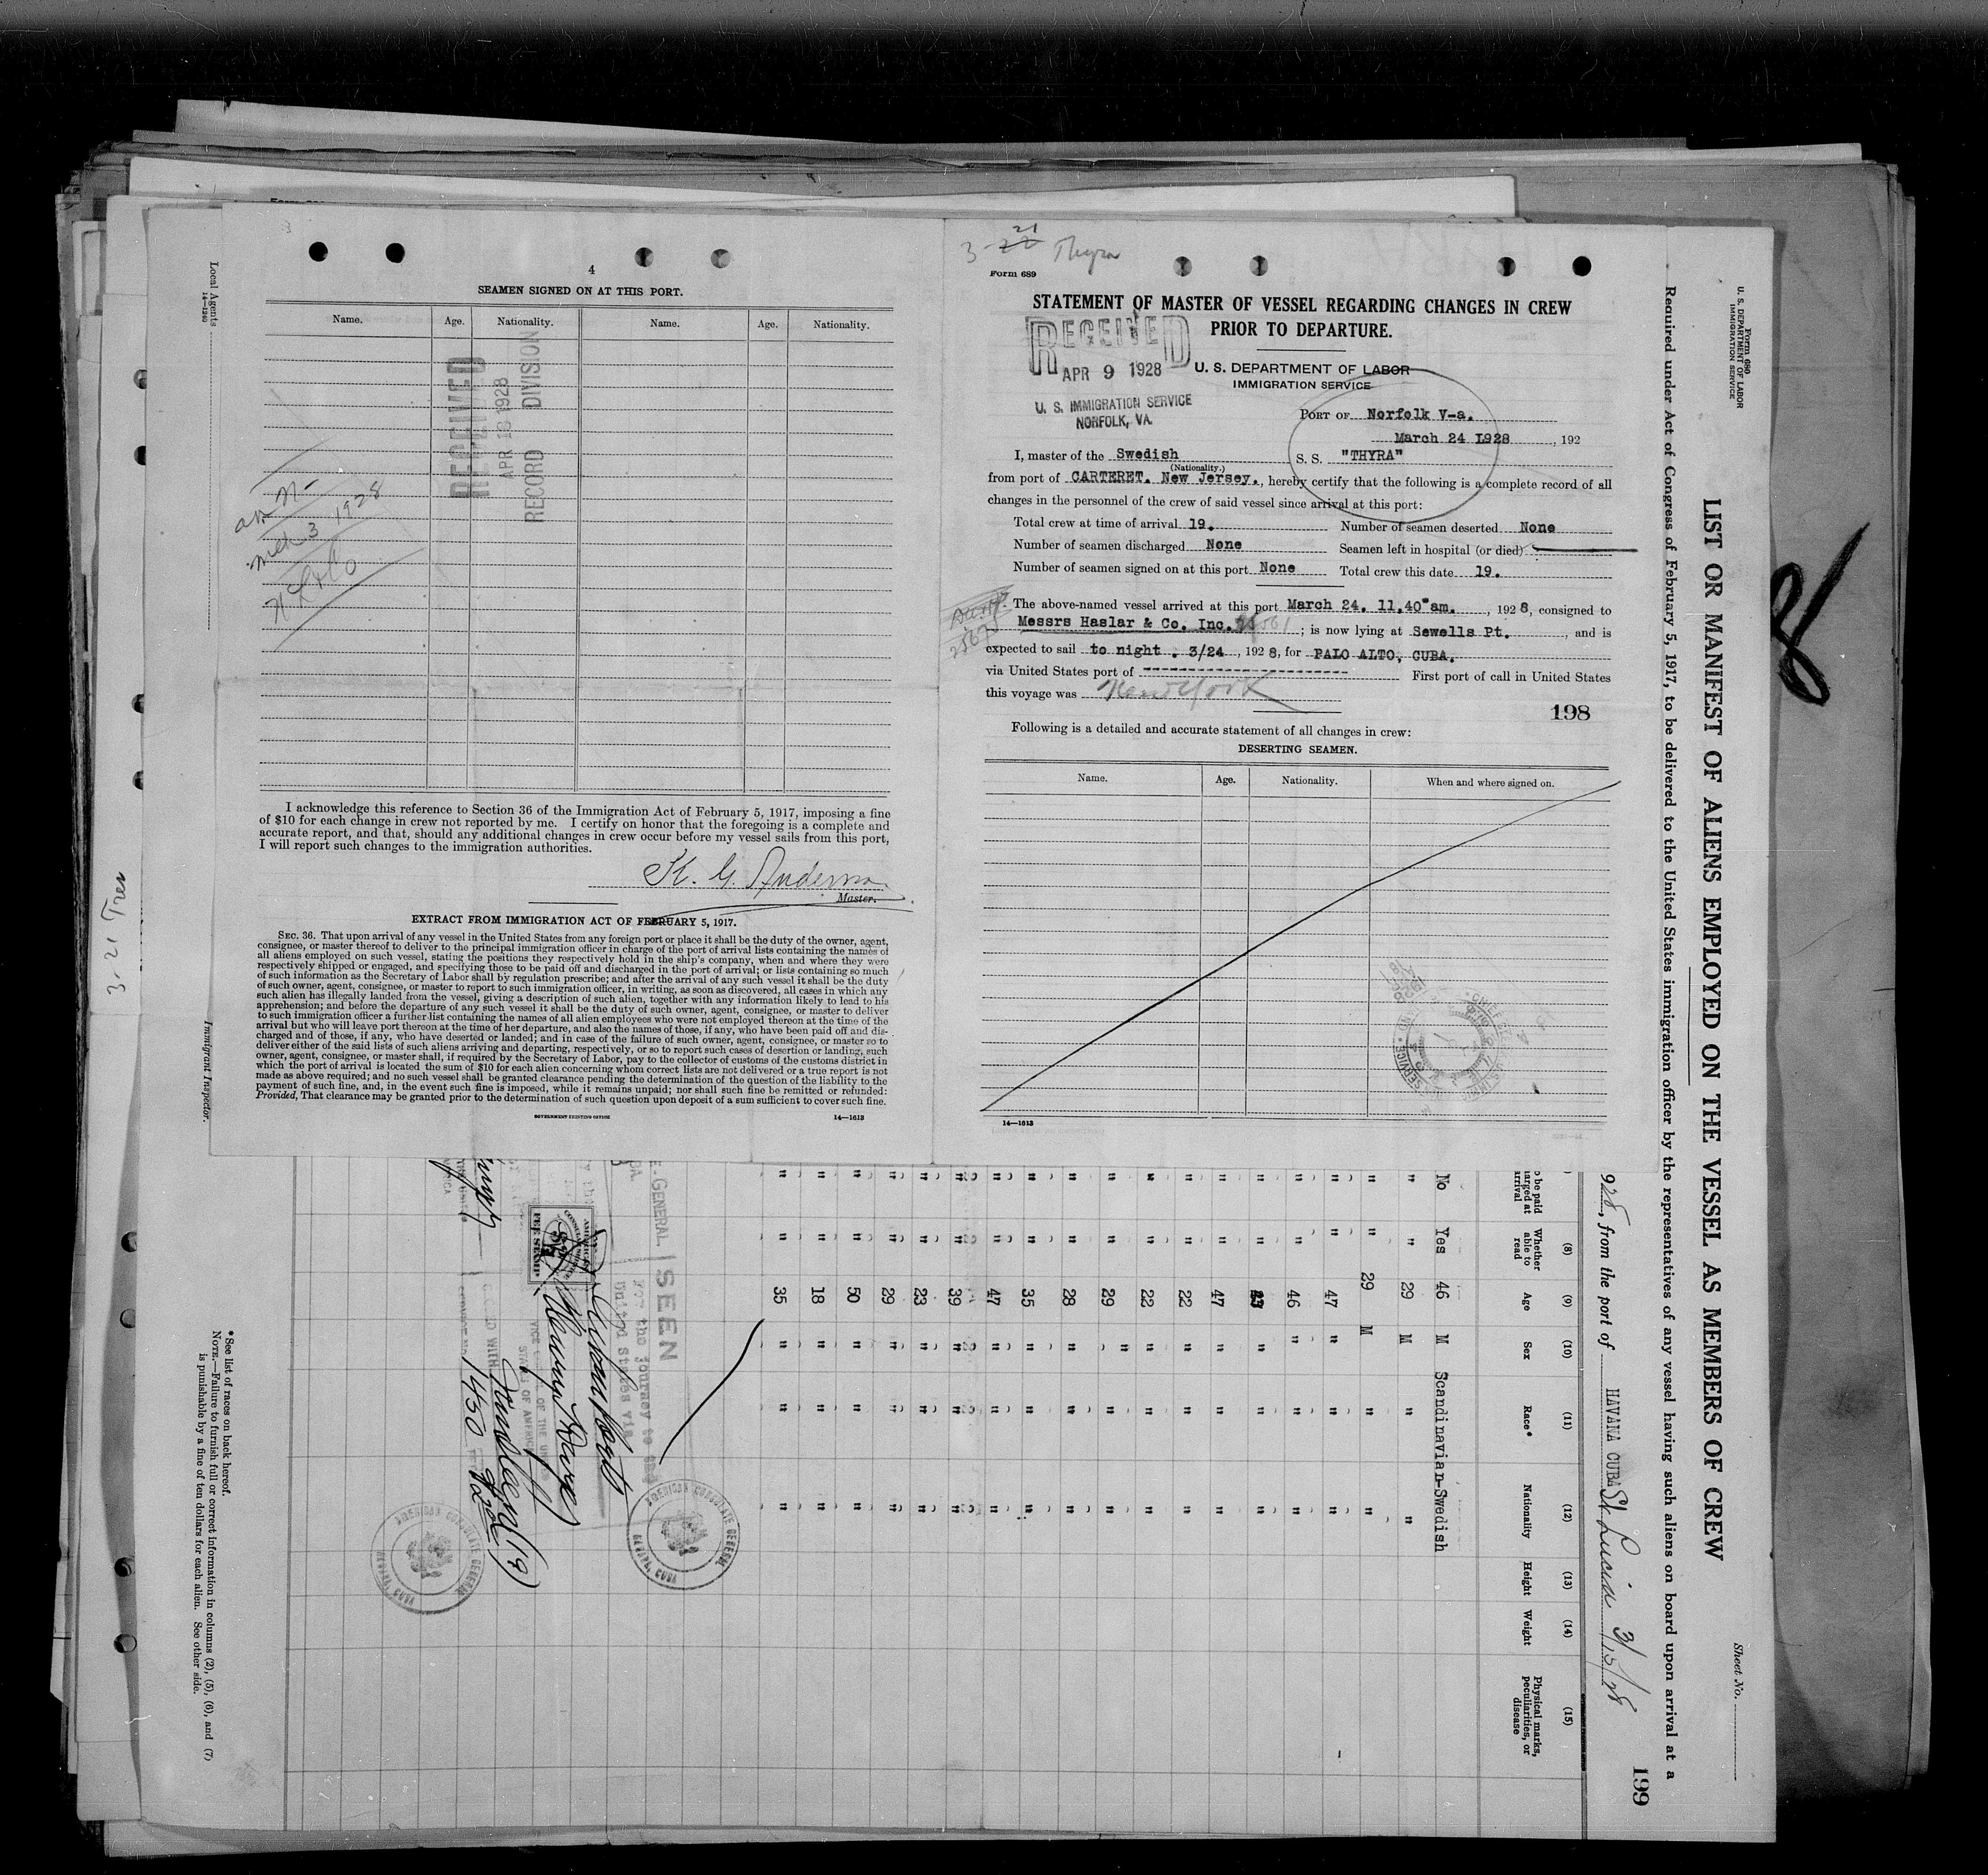 4
SEAMEN SIGNED ON AT THIS PORT.
Name. Age. Nationality. Name. Age. Nationality.
RECEIVED
APR 18 1928
RECORD DIVISION
3 1928
I acknowledge this reference to Section 36 of the Immigration Act of February 5, 1917, imposing a fine
of $10 for each change in crew not reported by me. I certify on honor that the foregoing is a complete and
accurate report, and that, should any additional changes in crew occur before my vessel sails from this port,
I will report such changes to the immigration authorities.
K. G. Anderson
Master.
EXTRACT FROM IMMIGRATION ACT OF FEBRUARY 5, 1917.
SEC. 36. That upon arrival of any vessel in the United States from any foreign port or place it shall be the duty of the owner, agent,
consignee, or master thereof to deliver to the principal immigration officer in charge of the port of arrival lists containing the names of
all aliens employed on such vessel, stating the positions they respectively hold in the ship's company, when and where they were
respectively shipped or engaged, and specifying those to be paid off and discharged in the port of arrival; or lists containing so much
of such information as the Secretary of Labor shall by regulation prescribe; and after the arrival of any such vessel it shall be the duty
of such owner, agent, consignee, or master to report to such immigration officer, in writing, as soon as discovered, all cases in which any
such alien has illegally landed from the vessel, giving a description of such alien, together with any information likely to lead to his
apprehension; and before the departure of any such vessel it shall be the duty of such owner, agent, consignee, or master to deliver
to such immigration officer a further list containing the names of all alien employees who were not employed thereon at the time of the
arrival but who will leave port thereon at the time of her departure, and also the names of those, if any, who have been paid off and dis-
charged and of those, if any, who have deserted or landed; and in case of the failure of such owner, agent, consignee, or master so to
deliver either of the said lists of such aliens arriving and departing, respectively, or so to report such cases of desertion or landing, such
owner, agent, consignee, or master shall, if required by the Secretary of Labor, pay to the collector of customs of the customs district in
which the port of arrival is located the sum of $10 for each alien concerning whom correct lists are not delivered or a true report is not
made as above required; and no such vessel shall be granted clearance pending the determination of the question of the liability to the
payment of such fine, and, in the event such fine is imposed, while it remains unpaid; nor shall such fine be remitted or refunded:
Provided, That clearance may be granted prior to the determination of such question upon deposit of a sum sufficient to cover such fine.
GOVERNMENT PRINTING OFFICE 14—1613
3-22 21 Thyra
Form 689
STATEMENT OF MASTER OF VESSEL REGARDING CHANGES IN CREW
PRIOR TO DEPARTURE.
RECEIVED
APR 9 1928
U. S. IMMIGRATION SERVICE
NORFOLK, VA.
U. S. DEPARTMENT OF LABOR
IMMIGRATION SERVICE
PORT OF Norfolk V-a.
March 24 1928, 192
I, master of the Swedish S. S. "THYRA"
(Nationality.)
from port of CARTERET. New Jersey., hereby certify that the following is a complete record of all
changes in the personnel of the crew of said vessel since arrival at this port:
Total crew at time of arrival 19. Number of seamen deserted None
Number of seamen discharged None Seamen left in hospital (or died)
Number of seamen signed on at this port None Total crew this date 19.
The above-named vessel arrived at this port March 24. 11.40 am., 1928, consigned to
Messrs Haslar & Co. Inc.; is now lying at Sewells Pt., and is
expected to sail to night . 3/24, 1928, for PALO ALTO, CUBA.
via United States port of ---------------- First port of call in United States
this voyage was New York
198
Following is a detailed and accurate statement of all changes in crew:
DESERTING SEAMEN.
Name. Age. Nationality. When and where signed on.
14—1613
Form 680
U. S. DEPARTMENT OF LABOR
IMMIGRATION SERVICE
Sheet No.
LIST OR MANIFEST OF ALIENS EMPLOYED ON THE VESSEL AS MEMBERS OF CREW
Required under Act of Congress of February 5, 1917, to be delivered to the United States immigration officer by the representatives of any vessel having such aliens on board upon arrival at a
928, from the port of HAVANA CUBA St Lucia 3/15/28
199
(8) (9) (10) (11) (12) (13) (14) (15)
Whether able to read Age Sex Race* Nationality Height Weight Physical marks, peculiarities, or disease
No Yes 46 M Scandinavian-Swedish
" " 29 M " "
" " 29 M " "
" " 47 " " "
" " 46 " " "
" " " " "
" " 47 " " "
" " 22 " " "
" " 22 " " "
" " 29 " " "
" " 28 " " "
" " 35 " " "
" " 47 " " "
" " 39 " " "
" " 23 " " "
" " 29 " " "
" " 50 " " "
" " 18 " " "
" " 35 " " "
SEEN
For the journey to the
United States via
AMERICAN CONSULATE GENERAL
HAVANA, CUBA
AMERICAN CONSULATE GENERAL
HAVANA, CUBA
FEE STAMP
*See list of races on back hereof.
NOTE.—Failure to furnish full or correct information in columns (2), (5), (6), and (7)
is punishable by a fine of ten dollars for each alien. See other side.
Local Agents
14—1240
Immigrant Inspector.
3-21